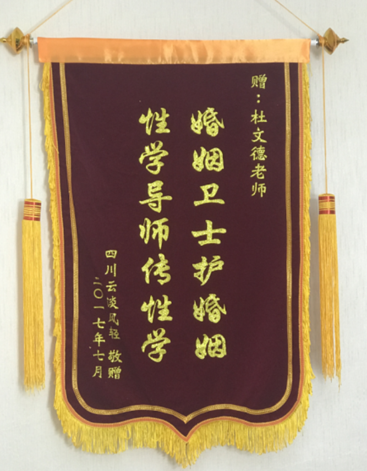 赠：杜文德老师
婚姻卫士护婚姻
性学导师传性学
四川云淡风轻 敬赠
二〇一七年七月